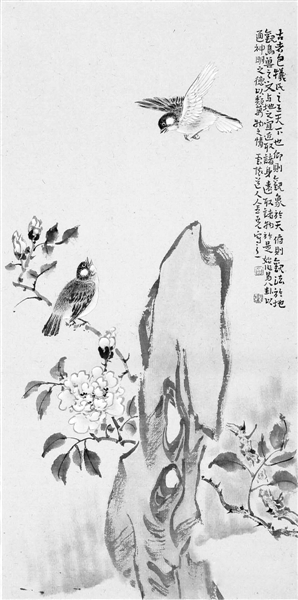 古者包犧氏之王天下也仰則觀象於天俯則觀法於地
觀鳥獸之文與地之宜近取諸身遠取諸物於是始作易八卦以
通神明之德以類萬物之情